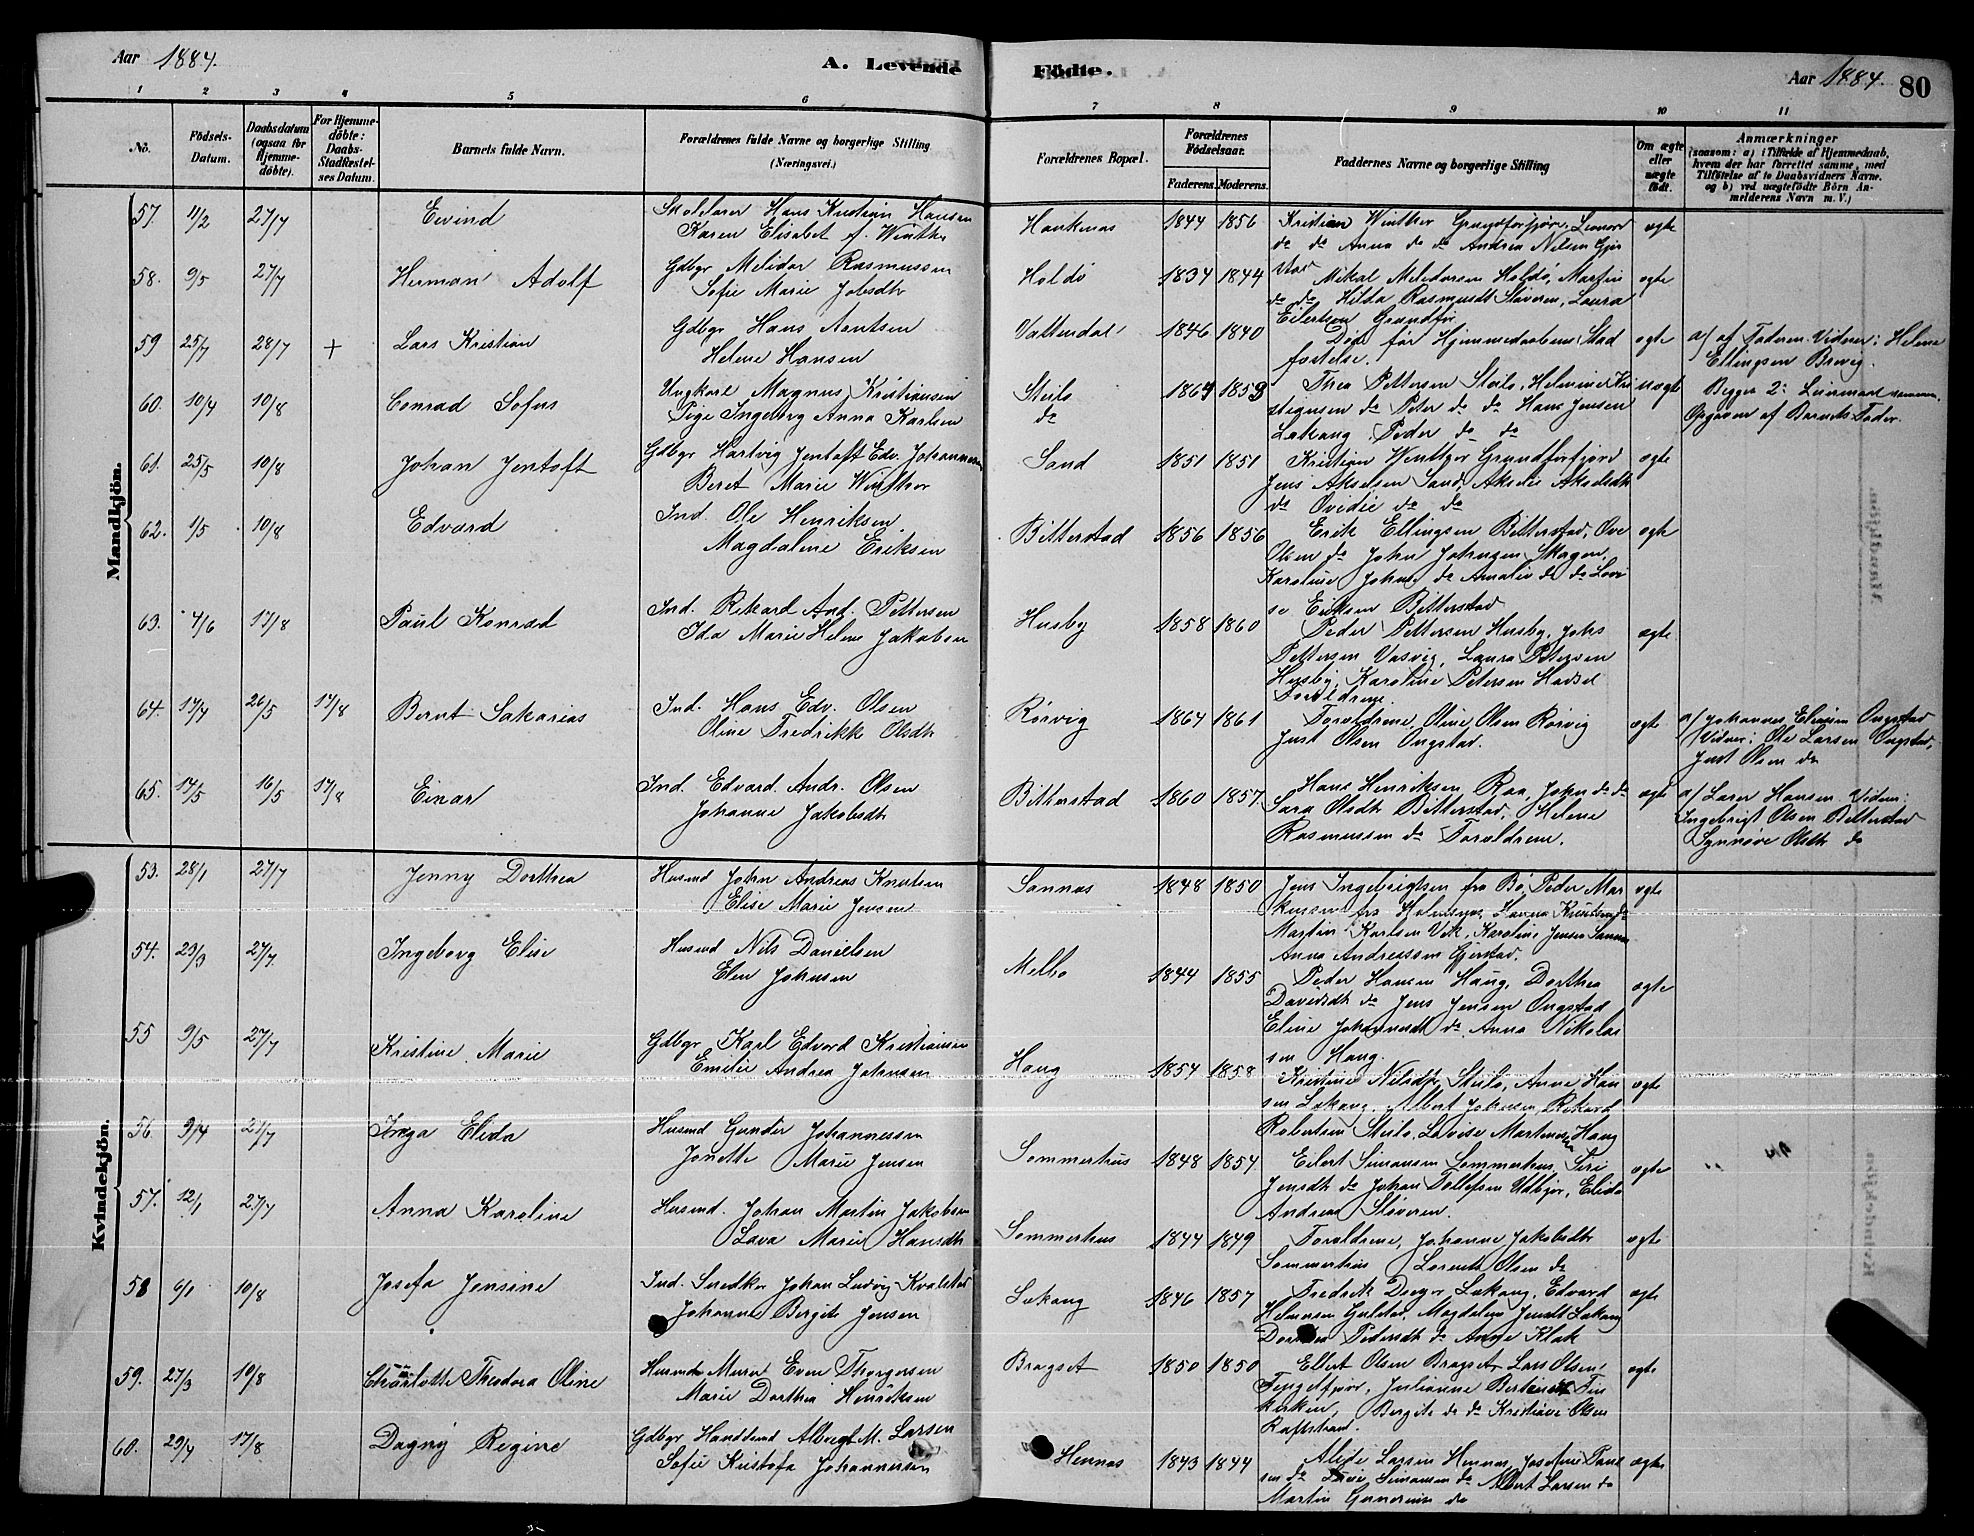 Aar 1884.
A. Levende Födte.
Aar 1884. 80
1 2 3 4 5 6 7 8 9 10 11
No.
Födsels-
Datum.
Daabsdatum
(ogsaa for
Hjemme-
döbte).
For Hjemme-
döbte:
Daabs-
Stadfæstel-
ses Datum.
Barnets fulde Navn.
Forældrenes fulde Navne og borgerlige Stilling
(Næringsvei.)
Forældrenes Bopæl.
Forældrenes
Födselsaar.
Faderens. Moderens.
Faddernes Navne og borgerlige Stilling
Om ægte
eller
uægte
födt.
Anmærkninger
(saasom: a) i Tilfælde af Hjemmedaab,
hvem der har forrettet samme, med
Tilföielse af to Daabsvidners Navne,
og b) ved uægtefödte Börn An-
melderens Navn m.V.)
Mandkjön.
57. 11/2 27/7 Eivind
Skolelærer Hans Kristian Hansen
Karen Elisabet f. Winther
Hanknæs 1844 1856
Kristian Winther Grundforfjord, Leonard
do do Anna do do Andrea Nilsen Gjer
stad
ægte
58. 9/5 27/7 Herman Adolf
Gdbgr Melidor Rasmussen
Sofie Marie Jakobsdtr
Holdö 1834 1844
Mikal Melidorsen Holdö, Martin
do do Hilda Rasmusdt Støveren, Laura
Eilertsen Grundfor
ægte
59 25/7 28/7 + Lars Kristian
Gdbgr Hans Arntsen
Helene Hansen
Vattendal 1846 1840
Död før Hjemmedaabens Stad
festelse.
ægte
a/ af Faderen. Vidner: Helena
Ellingsen Brevig.
60. 10/4 10/8 Conrad Sofus
Ungkarl Magnus Kristiansen
Pige Ingeborg Anna Karlsen
Steilo
do
1864 1859
Thea Pettersen Steilo, Helmine Kri
stiansen do Peter do do Hans Jensen
Lekang, Peder do do
uægte
Begges 2: Leiermaal sammen.
Opgaven af Barnets Fader.
61. 25/5 10/8 Johan Jentoft
Gdbgr Hartvig Jentoft Edv. Johannesen
Beret Marie Winther
Sand 1851 1851
Kristian Winther Grundforfjord
Jens Akselsen Sand, Akselie Akseldtr
do Ovidie do do
ægte
62. 1/5 10/8 Edvard
Ind. Ole Henriksen
Magdalene Eriksen
Bitterstad 1856 1856
Erik Ellingsen Bitterstad, Ove
Olsen do John Johnsen Skagen,
Karoline Johns. do Amalie do do Lovi
se Eriksen Bitterstad
ægte
63. 7/6 17/8 Paul Konrad
Ind. Rikard And. Pettersen
Ida Marie Helene Jakobsen
Husby 1858 1860
Peder Pettersen Husby, Johs
Pettersen Vasvig, Laura Petersen
Husby, Karoline Petersen Hadsel
Forældrene.
ægte
64. 17/4 26/5 17/8 Bernt Sakarias
Ind. Hans Edv. Olsen
Oline Fredrikke Olsdtr
Rörvig 1864 1861
Forældrene, Oline Olsen Rörvig
Just Olsen Ongstad.
ægte
a/ Johannes Ongstad
Vidner: Ole Larsen Ongstad,
Just Olsen do
65. 17/5 16/5 17/8 Einar
Ind. Edvard Andr. Olsen
Johanne Jakobsdtr
Bitterstad 1860 1857.
Hans Henriksen Raa, John do do
Sara Olsdtr Bitterstad, Helene
Rasmussen do Forældrene.
ægte
a/ Larer Hansen. Vidner:
Ingebrigt Olsen Bitterstad
Synnöve Olsdtr do
Kvindekjön.
53. 28/1 27/7 Jenny Dorthea
Husmd Johan Andreas Knutsen
Elise Marie Jensen
Sannæs 1848 1850
Jens Ingebrigtsen fra Bö, Peder Mar
kussen fra Holmsnæs, Hanna Knutsen do
Martin Karlsen Vik, Karoline Jensen Sannæs
Anna Andreassen Gjerstad.
ægte
54. 23/3 27/7. Ingeborg Elise
Husmd Nils Danielsen
Elen Johnsen
Melbo 1844 1855
Peder Hansen Haug, Dorthea
Davidsdtr do Jens Jensen Ongstad
Eline Johannesdt do Anna Nikolai
sen Haug.
ægte
55 9/5 27/7 Kristine Marie
Gdbgr Karl Edvard Kristiansen
Emilie Andrea Johnsen
Haug 1854 1858
Kristine Nilsdtr Steilo, Anne Han
sen Lekang, Albert Johnsen, Rikard
Robertsen Steilo, Lovise Martinsen Haug
ægte
56. 9/4 27/7 Inga Elida
Husmd Gunder Johannessen
Jonette Marie Jensen
Sommerhus 1848 1854
Eilert Simonsen Sommerhus, Siri
Jensdtr do Johan Tollefsen Uthjör, Elida
Andrea Støveren.
ægte
57. 12/1 27/7 Anna Karoline
Husmd. Johan Martin Jakobsen
Lava Marie Hansdtr
Sommerhus 1844 1849
Forældrene, Johanne Jakobsdtr
Sommerhus Lorents Olsen do
ægte
58 6/1 10/8 Josefa Jensine
Ind. Snedker Johan Ludvig Kvalstad
Johanne Bergite Jensen
Lekang 1846 1857
Fredrik Dreyer Lekang, Edvard
Helmersen Gulstad, Magdalena Jensdt Lekang
Dorthea Pedersdtr do Anne Klak
ægte
59. 27/3 10/8 Charlotte Theodora Oline
Husmd Murer Even Thorgersen
Marie Dorthea Henriksen
Bragset 1850 1850
Ellert Olsen Bragset Lars Olsen,
Fengelfjor, Julianne Bertinusdt Fin
kirken, Bergite do do Kristiane Olsen
Raftstrand.
ægte
60. 29/4 17/8. Dagny Regine
Gdbgr Handlsmd Albregt M. Larsen
Sofie Kristofa Johannesen
Hennæs 1843 1844
Alide Larsen Hennæs, Josefine Paul
sen do Simonsen do Albert Larsen do
Martin Gunersen do
ægte